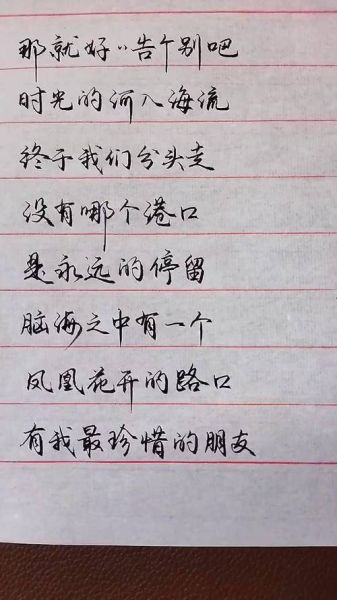 那就好好告个别吧
时光的河入海流
终于我们分头走
没有哪个港口
是永远的停留
脑海之中有一个
凤凰花开的路口
有我最珍惜的朋友